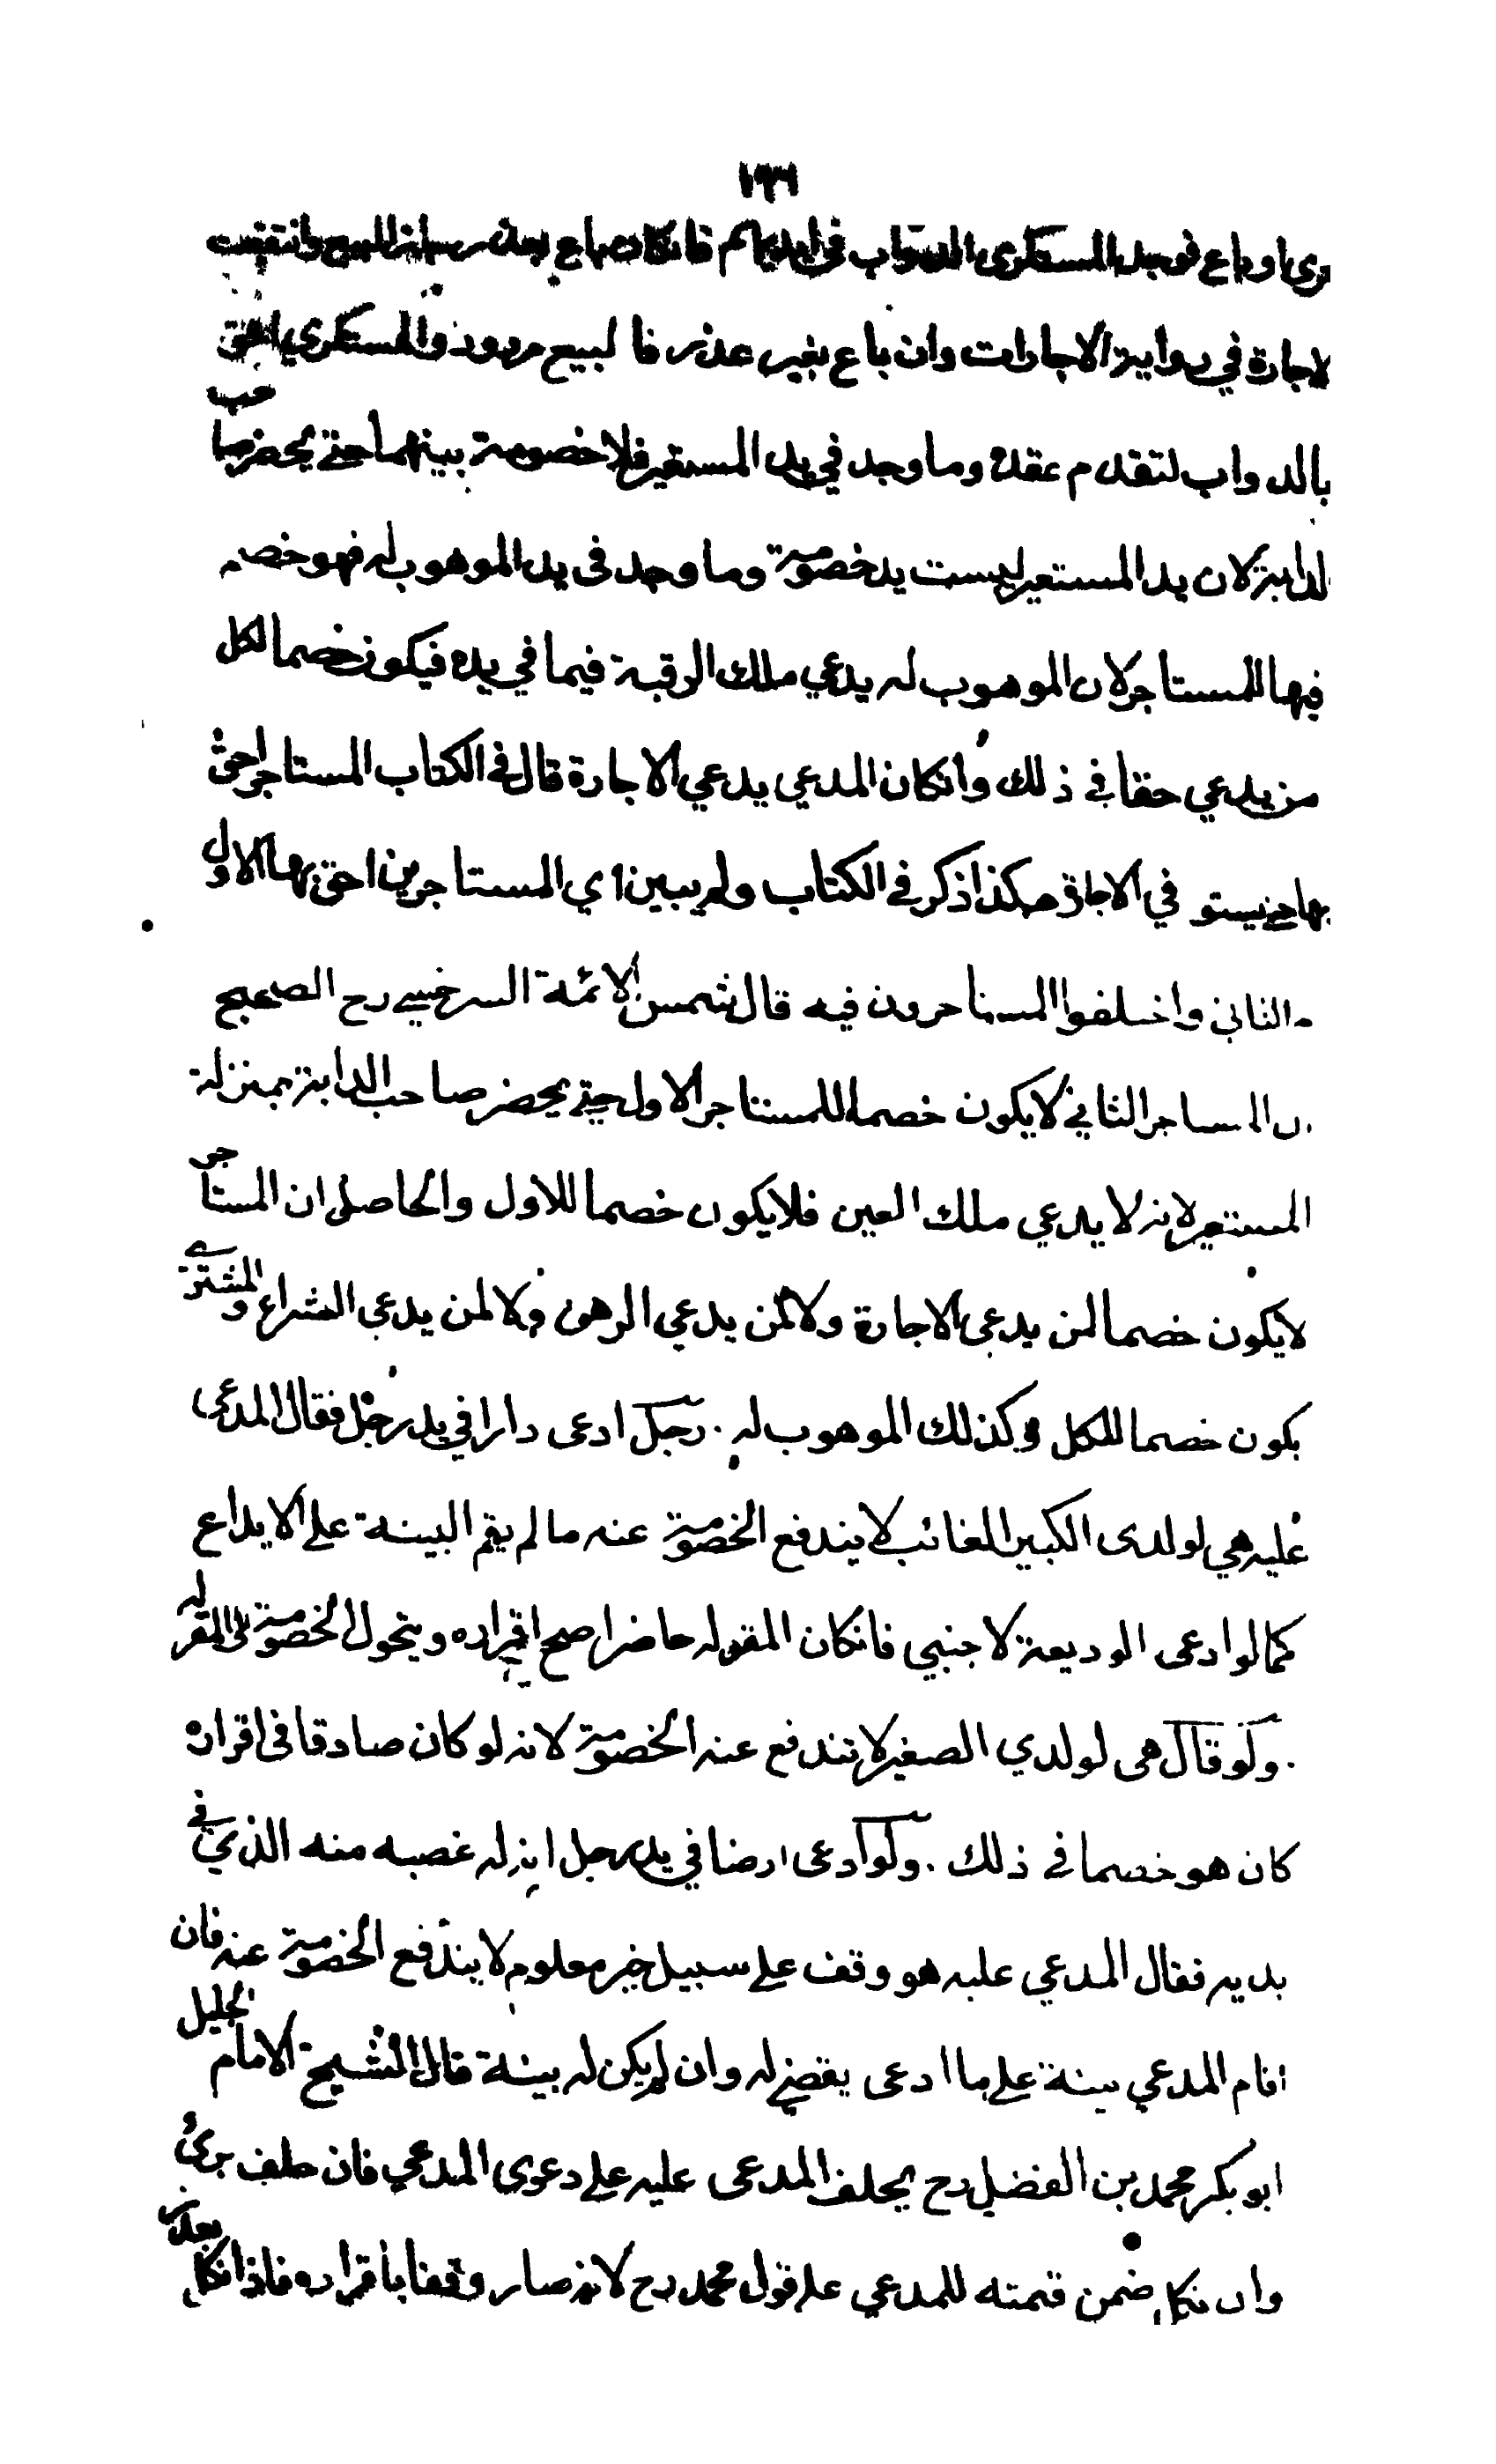 ١٣٦
او باع فوجد المستكرى الدواب في ايديهم فانكان باع بعذر جاز البيع وانتقضت
لاجارة في رواية الاجارات وان باع بغير عذر فالبيع مردود والمستكري احق
بالدواب لتقدم عقده وما وجد في يد المستعير فلا خصومة بينهما حتى يحضر صاحب
لدابة لان يد المستعير ليست يد خصومة وما وجد في يد الموهوب له فهو خصم
فيها للمستاجر لان الموهوب له يدعي ملك الرقبة فيما في يده فيكون خصما لكل
من يدعي حقا في ذلك وانكان المدعي يدعي الاجارة قال في الكتاب المستاجر احق
بها حتى يستو في الاجارة هكذا ذكر في الكتاب ولم يبين اي المستاجرين احق بها الاول
م الثاني واختلفوا المستاخرون فيه قال شمس الائمة السرخسي رح الصحيح
ن المستاجر الثاني لا يكون خصما للمستاجر الاول حتى يحضر صاحب الدابة بمنزلة
المستعير لانه لا يدعي ملك العين فلا يكون خصما للاول والحاصل ان المستاجر
لا يكون خصما لمن يدعي الاجارة ولا لمن يدعي الرهن ولا لمن يدعي الشراء والمشتري
يكون خصما للكل وكذلك الموهوب له . رجل ادعى دارا في يد رجل فقال المدعى
عليه هي لولدى الكبير الغائب لا يندفع الخصومة عنه ما لم يقم البينة على الايداع
كما لو ادعى الوديعة لاجنبي فانكان المقر له حاضرا صح اقراره ويتحول الخصومة الى المقر له
. ولو قال هى لولدي الصغير لا تندفع عنه الخصومة لانه لو كان صادقا في اقراره
كان هو خصما في ذلك . ولو ادعى ارضا في يد رجل انه له غصبه منه الذي في
يديه فقال المدعي عليه هو وقف على سبيل خير معلوم لا يندفع الخصومة عنه فان
اقام المدعي بينة على ما ادعى يقضى له وان لم يكن له بينة قال الشيخ الامام الجليل
ابو بكر محمد بن الفضل رح يحلف المدعى عليه على دعوى المدعي فان حلف برئ
وان نكل ضمن قيمته للمدعي على قول محمد رح لانه صار وقفا باقراره فاذا نكل بعد